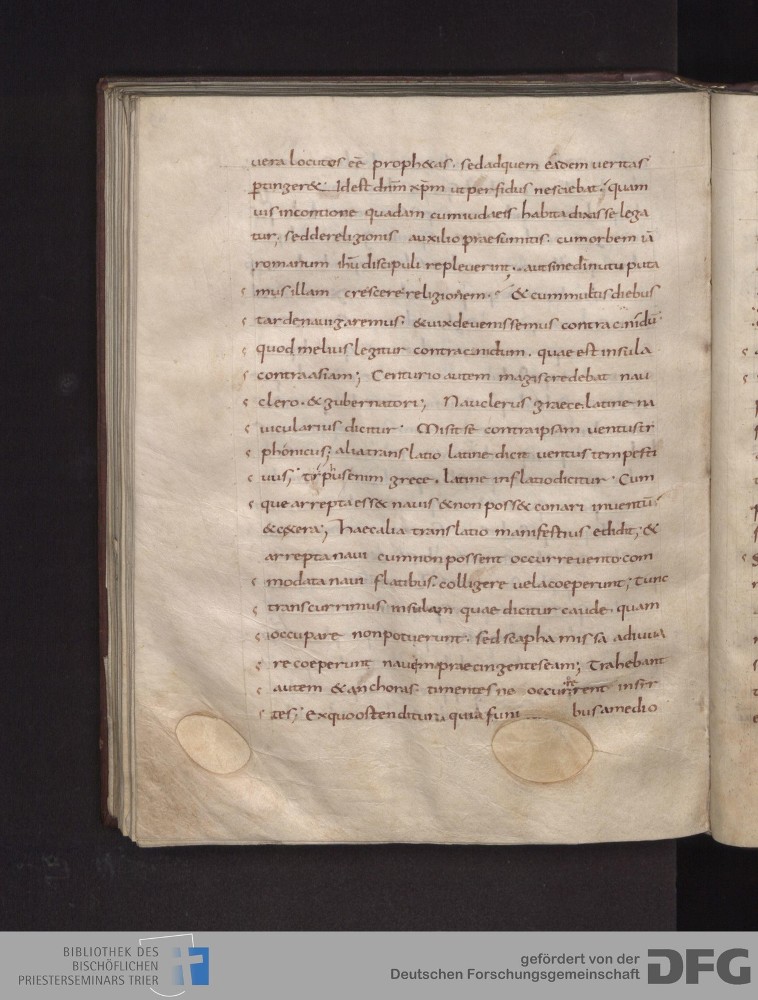 uera locutos eē proph&as. sed ad quem eadem ueritas
ptinger&. Id est dnm xpm ut perfidus nesciebat. quam
uis in contione quadam cum iudaeis habita dixisse lega
tur; sed de religionis auxilio praesumitis. cum orbem iā
romanum ihū discipuli repleuerint. aut sine dī nutu puta
mus illam crescere religionem. & cum multis diebus
tarde nauigaremus. & uix deuenissemus contra cnidū
quod melius legitur contra cnidum. quae est insula
contra asiam; Centurio autem magis credebat nau
clero. & gubernatori; Nauclerus graece latine na
uicularius dicitur. Misit se contra ipsam uentus ty
phonicus; alia translatio latine dicit uentus tempesti
uus; enim grece. latine inflatio dicitur. Cum
que arrepta ess& nauis & non poss& conari in uentū
& c&era; Haec alia translatio manifestius edidit; &
arrepta naui cum non possent occurre uento com
modata naui flatibus. colligere uela coeperunt; tunc
transcurrimus insulam quae dicitur caude. quam
occupare non potuerunt. sed scapha missa adiuua
re coeperunt nauem praecingentes eam; Trahebant
autem & anchoras. timentes ne occurrerent in syr
tes; Ex quo ostenditur. quia funi bus a medio
BIBLIOTHEK DES
BISCHÖFLICHEN
PRIESTERSEMINARS TRIER
gefördert von der
Deutschen Forschungsgemeinschaft
DFG